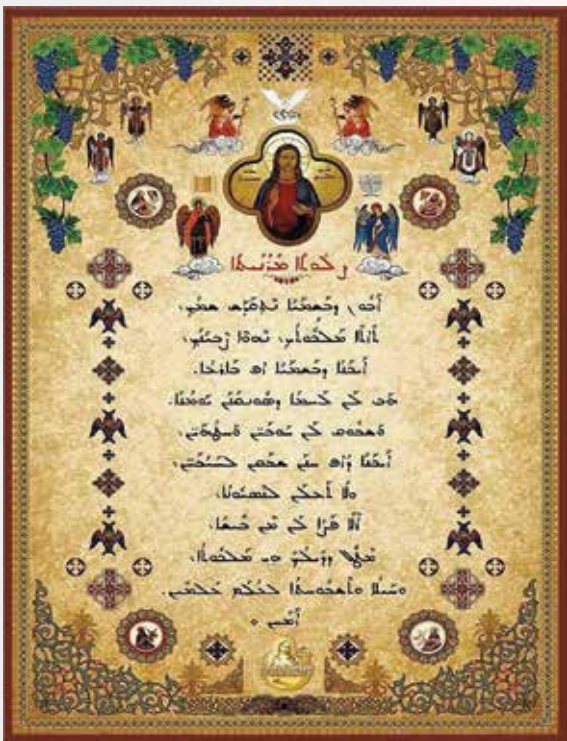 ܨܠܘܬܐ ܡܪܢܝܬܐ
ܐܒܘܢ ܕܒܫܡܝܐ ܢܬܩܕܫ ܫܡܟ܆
ܬܐܬܐ ܡܠܟܘܬܟ܆ ܢܗܘܐ ܨܒܝܢܟ܆
ܐܝܟܢܐ ܕܒܫܡܝܐ ܐܦ ܒܐܪܥܐ.
ܗܒ ܠܢ ܠܚܡܐ ܕܣܘܢܩܢܢ ܝܘܡܢܐ.
ܘܫܒܘܩ ܠܢ ܚܘܒܝܢ ܘܚܛܗܝܢ܆
ܐܝܟܢܐ ܕܐܦ ܚܢܢ ܫܒܩܢ ܠܚܝܒܝܢ܆
ܘܠܐ ܬܥܠܢ ܠܢܣܝܘܢܐ.
ܐܠܐ ܦܨܐ ܠܢ ܡܢ ܒܝܫܐ܆
ܡܛܠ ܕܕܝܠܟ ܗܝ ܡܠܟܘܬܐ܆
ܘܚܝܠܐ ܘܬܫܒܘܚܬܐ ܠܥܠܡ ܥܠܡܝܢ.
ܐܡܝܢ ܀